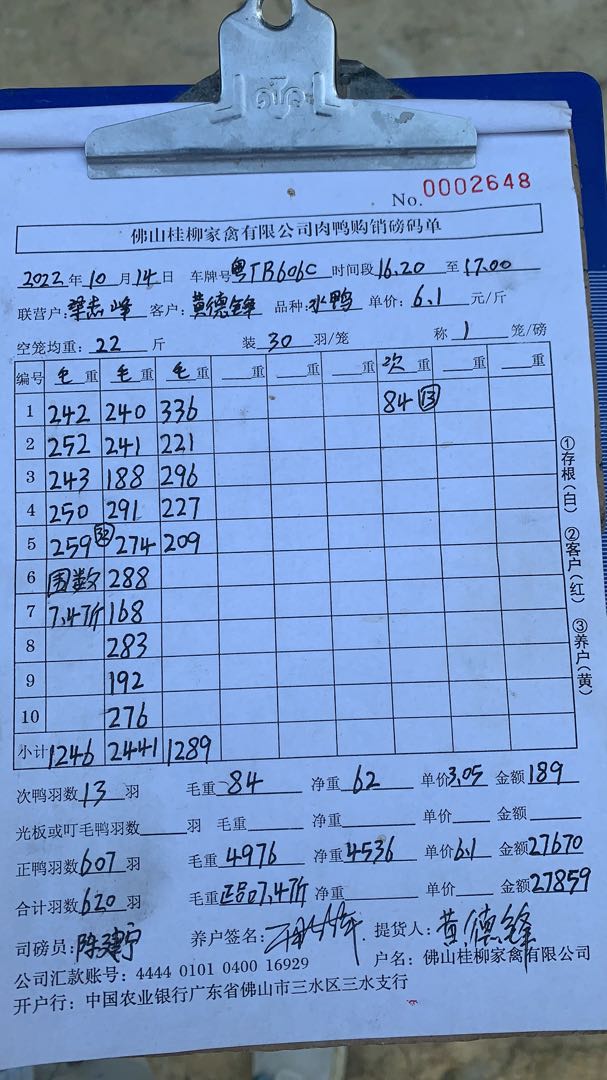 No. 0002648
佛山桂柳家禽有限公司肉鸭购销磅码单
2022年10月14日 车牌号粤TB606C 时间段16.20至17.00
联营户: 梁志峰 客户: 黄德锋 品种: 水鸭 单价: 6.1 元/斤
空笼均重: 22 斤 装 30 羽/笼 称 1 笼/磅
编号 毛重 毛重 毛重 重 重 重 次重 重 重
1 242 240 336 84 ⑬
2 252 241 221
3 243 188 296
4 250 291 227
5 259 274 209
6 围数 288
7 7.47斤 168
8 283
9 192
10 276
小计 1246 2441 1289
①存根(白) ②客户(红) ③养户(黄)
次鸭羽数 13 羽 毛重 84 净重 62 单价 3.05 金额 189
光板或叮毛鸭羽数 羽 毛重 净重 单价 金额
正鸭羽数 607 羽 毛重 4976 净重 4536 单价 6.1 金额 27670
合计羽数 620 羽 毛重 正品7.47斤 净重 单价 金额 27859
司磅员: 陈建宁 养户签名: 提货人: 黄德锋
公司汇款账号: 4444 0101 0400 16929 户名: 佛山桂柳家禽有限公司
开户行: 中国农业银行广东省佛山市三水区三水支行